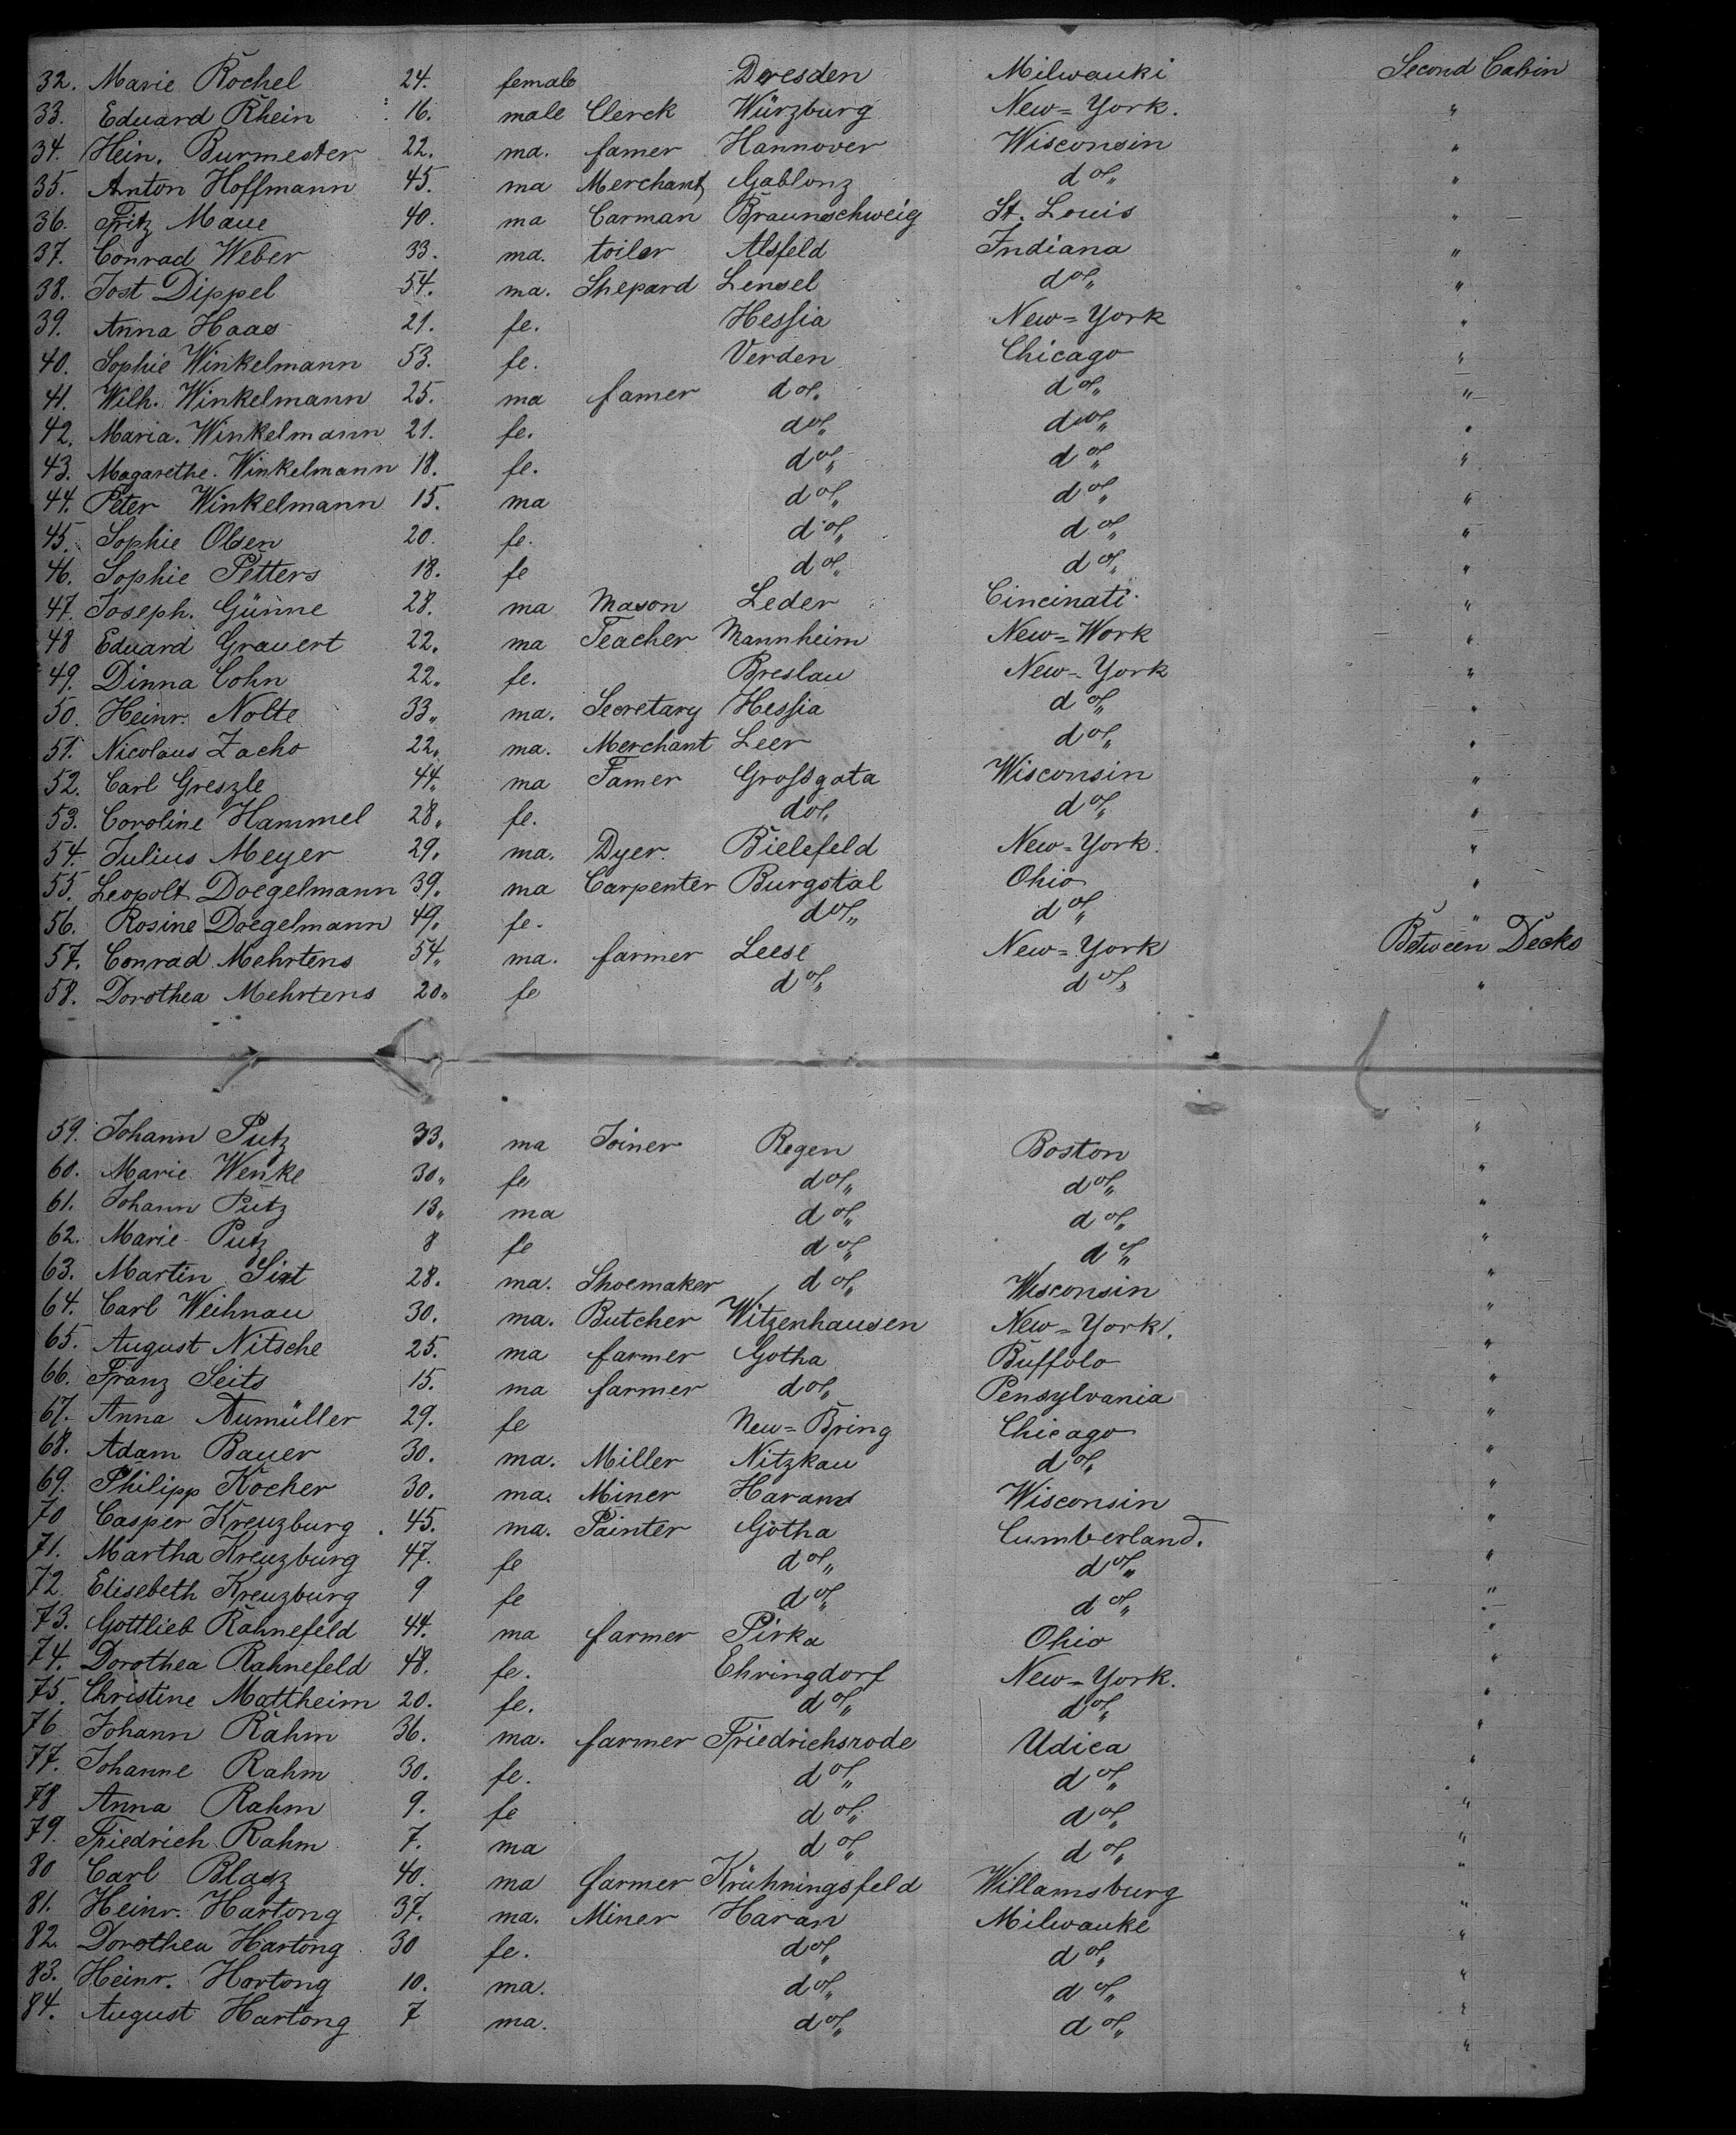 32. Marie Rochel 24. female Dresden Milwauki Second Cabin
33. Eduard Rhein 16. male Clerck Würzburg New=York. "
34. Hein. Burmester 22. ma. famer Hannover Wisconsin "
35. Anton Hoffmann 45. ma Merchant Gablonz do/. "
36. Fritz Maue 40. ma Carman Braunschweig St. Louis "
37. Conrad Weber 33. ma. toiler Alsfeld Indiana "
38. Jost Dippel 54. ma. Shepard Lensel do/. "
39. Anna Haas 21. fe. Hessia New=York "
40. Sophie Winkelmann 53. fe. Verden Chicago "
41. Wilh. Winkelmann 25. ma famer do/. do/. "
42. Maria. Winkelmann 21. fe. do/. do/. "
43. Magarethe. Winkelmann 18. fe. do/. do/. "
44. Peter Winkelmann 15. ma do/. do/. "
45. Sophie Olsen 20. fe. do/. do/. "
46. Sophie Petters 18. fe do/. do/. "
47. Joseph. Günne 28. ma Mason Leder Cincinati "
48 Eduard Grauert 22. ma Teacher Mannheim New=Work "
49. Dinna Cohn 22. fe. Breslau New=York "
50. Heinr. Nolte 33. ma. Secretary Hessia do/. "
51. Nicolaus Zacho 22. ma. Merchant Leer do/. "
52. Carl Greszle 44. ma Famer Grossgota Wisconsin "
53. Coroline Hammel 28. fe. do/. do/. "
54. Julius Meyer 29. ma. Dyer. Bielefeld New=York. "
55. Leopolt Doegelmann 39. ma Carpenter Burgstal Ohio "
56. Rosine Doegelmann 49. fe. do/. do/. "
57. Conrad Mehrtens 54. ma. farmer Leese New=York Between Decks
58. Dorothea Mehrtens 20. fe do/. do/. "
59. Johann Putz 33. ma Joiner Regen Boston "
60. Marie Wenke 30. fe do/. do/. "
61. Johann Putz 13. ma do/. do/. "
62. Marie Putz 8 fe do/. do/. "
63. Martin Sixt 28. ma. Shoemaker do/. Wisconsin "
64. Carl Weihnau 30. ma. Butcher Witzenhausen New=York. "
65. August Nitsche 25. ma farmer Gotha Buffolo "
66. Franz Seits 15. ma farmer do/. Pensylvania "
67. Anna Aumüller 29. fe Neu=Bring Chicago "
68. Adam Bauer 30. ma. Miller Nitzkau do/. "
69. Philipp Kocher 30. ma. Miner Harand Wisconsin "
70 Casper Kreuzburg 45. ma. Painter Gotha Cumberland. "
71. Martha Kreuzburg 47. fe do/. do/. "
72 Elisebeth Kreuzburg 9 fe do/. do/. "
73. Gottlieb Rahnefeld 44. ma farmer Pirka Ohio "
74. Dorothea Rahnefeld 48. fe. Ehringdorf New=York. "
75. Christine Mattheim 20. fe. do/. do/. "
76 Johann Rahm 36. ma. farmer Friedrichsrode Udica "
77. Johanne Rahm 30. fe. do/. do/. "
78 Anna Rahm 9. fe do/. do/. "
79. Friedrich Rahm 7. ma do/. do/. "
80 Carl Blasz 40. ma farmer Krühningsfeld Willamsburg "
81. Heinr. Hartong 37. ma. Miner Haran Milwauke "
82. Dorothea Hartong 30 fe. do/. do/. "
83. Heinr. Hortong 10. ma. do/. do/. "
84. August Hartong 7 ma. do/. do/. "